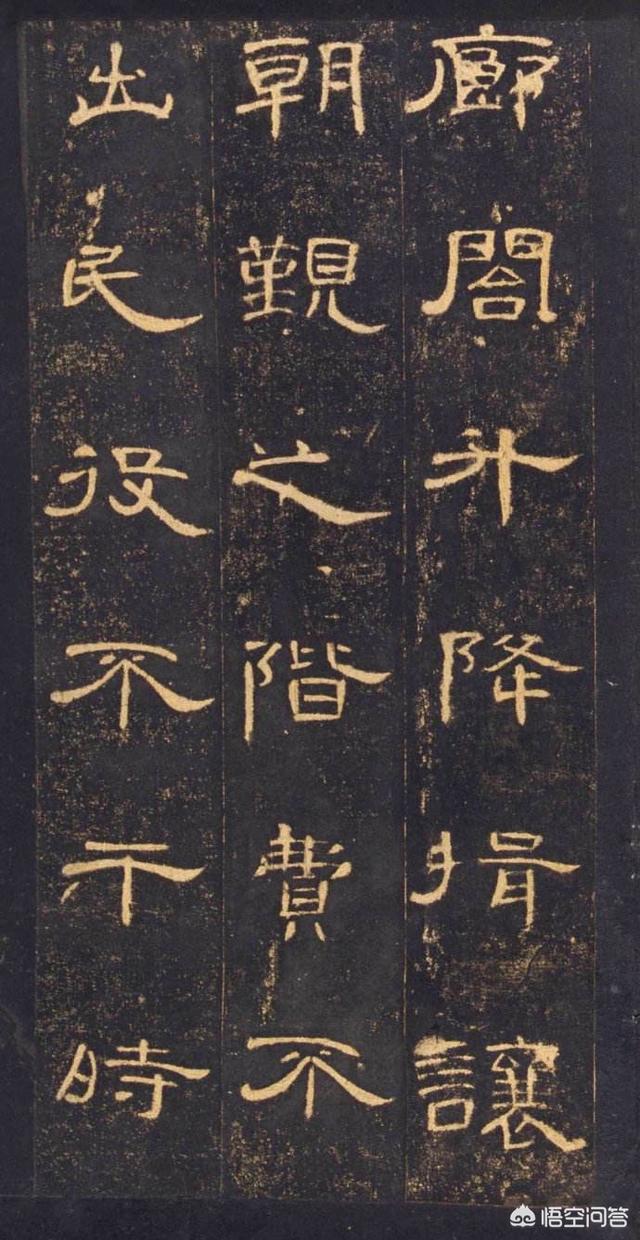 廊閤升降揖讓
朝覲之階費不
出民役不干時
悟空问答